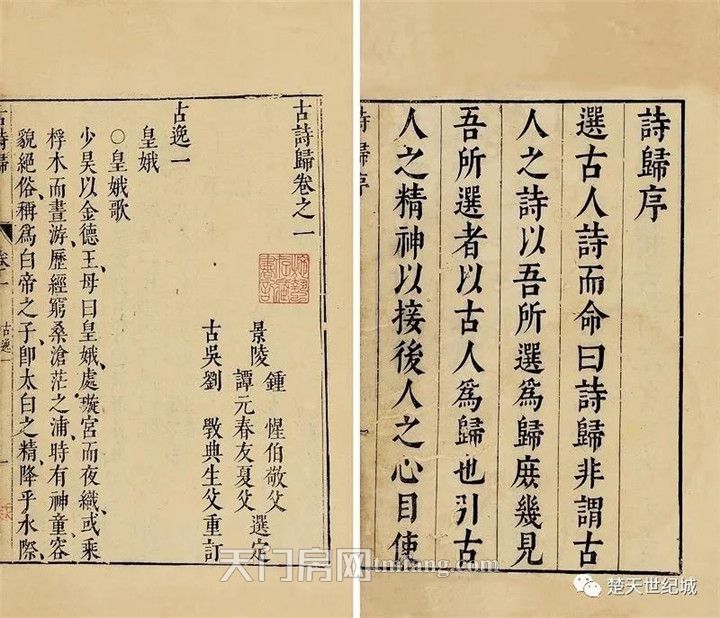 詩歸序
選古人詩而命曰詩歸非謂古
人之詩以吾所選爲歸庻幾見
吾所選者以古人爲歸也引古
人之精神以接後人之心目使
詩歸序
古詩歸卷之一
景陵
鍾惺伯敬父
譚元春友夏父
選定
古吳劉斆典生父重訂
古逸一
皇娥
○皇娥歌
少昊以金德王母曰皇娥處璇宮而夜織或乘
桴木而晝游歷經窮桑滄茫之浦時有神童容
貌絕俗稱爲白帝之子卽太白之精降乎水際
古詩歸
卷一
古逸一
一
天门房网
tmfang.com
楚天世纪城